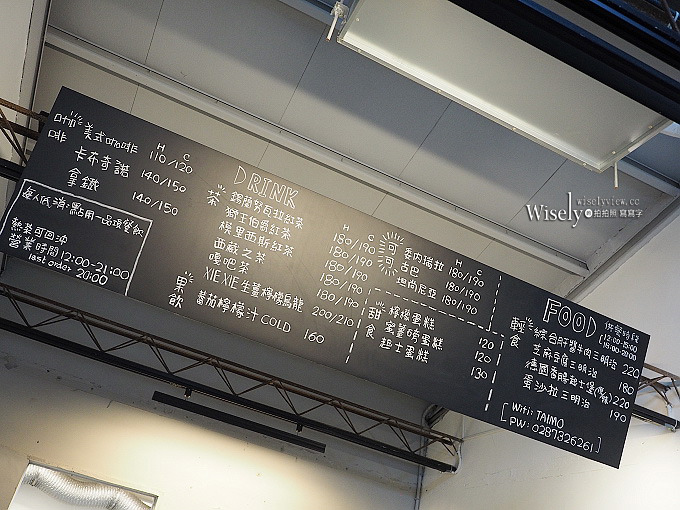 咖啡
H C
美式咖啡 110/120
卡布奇諾 140/150
拿鐵 140/150
每人低消:點用一品項餐飲
熱茶可回沖
營業時間12:00-21:00
last order 20:00
DRINK
茶
H C
錫蘭努瓦拉紅茶 180/190
獅王伯爵紅茶 180/190
模里西斯紅茶 180/190
西藏之茶 180/190
嘎吧茶 180/190
XIE XIE生薑檸檬烏龍 200/210
果飲
蕃茄檸檬汁 COLD 160
H C
委內瑞拉 180/190
古巴 180/190
坦尚尼亞 180/190
甜食
檸檬蛋糕 120
蜜薑6奇蛋糕 120
起士蛋糕 130
FOOD
供餐時段
[12:00-15:00
18:00-20:00
輕食
綜合肝醬牛肉三明治 220
芝麻豆腐三明治 180
德國香腸起士堡 220
蛋沙拉三明治 190
[Wifi: TAIMO
PW: 0287326261]
wiselyview.cc
Wisely 拍拍照 寫寫字